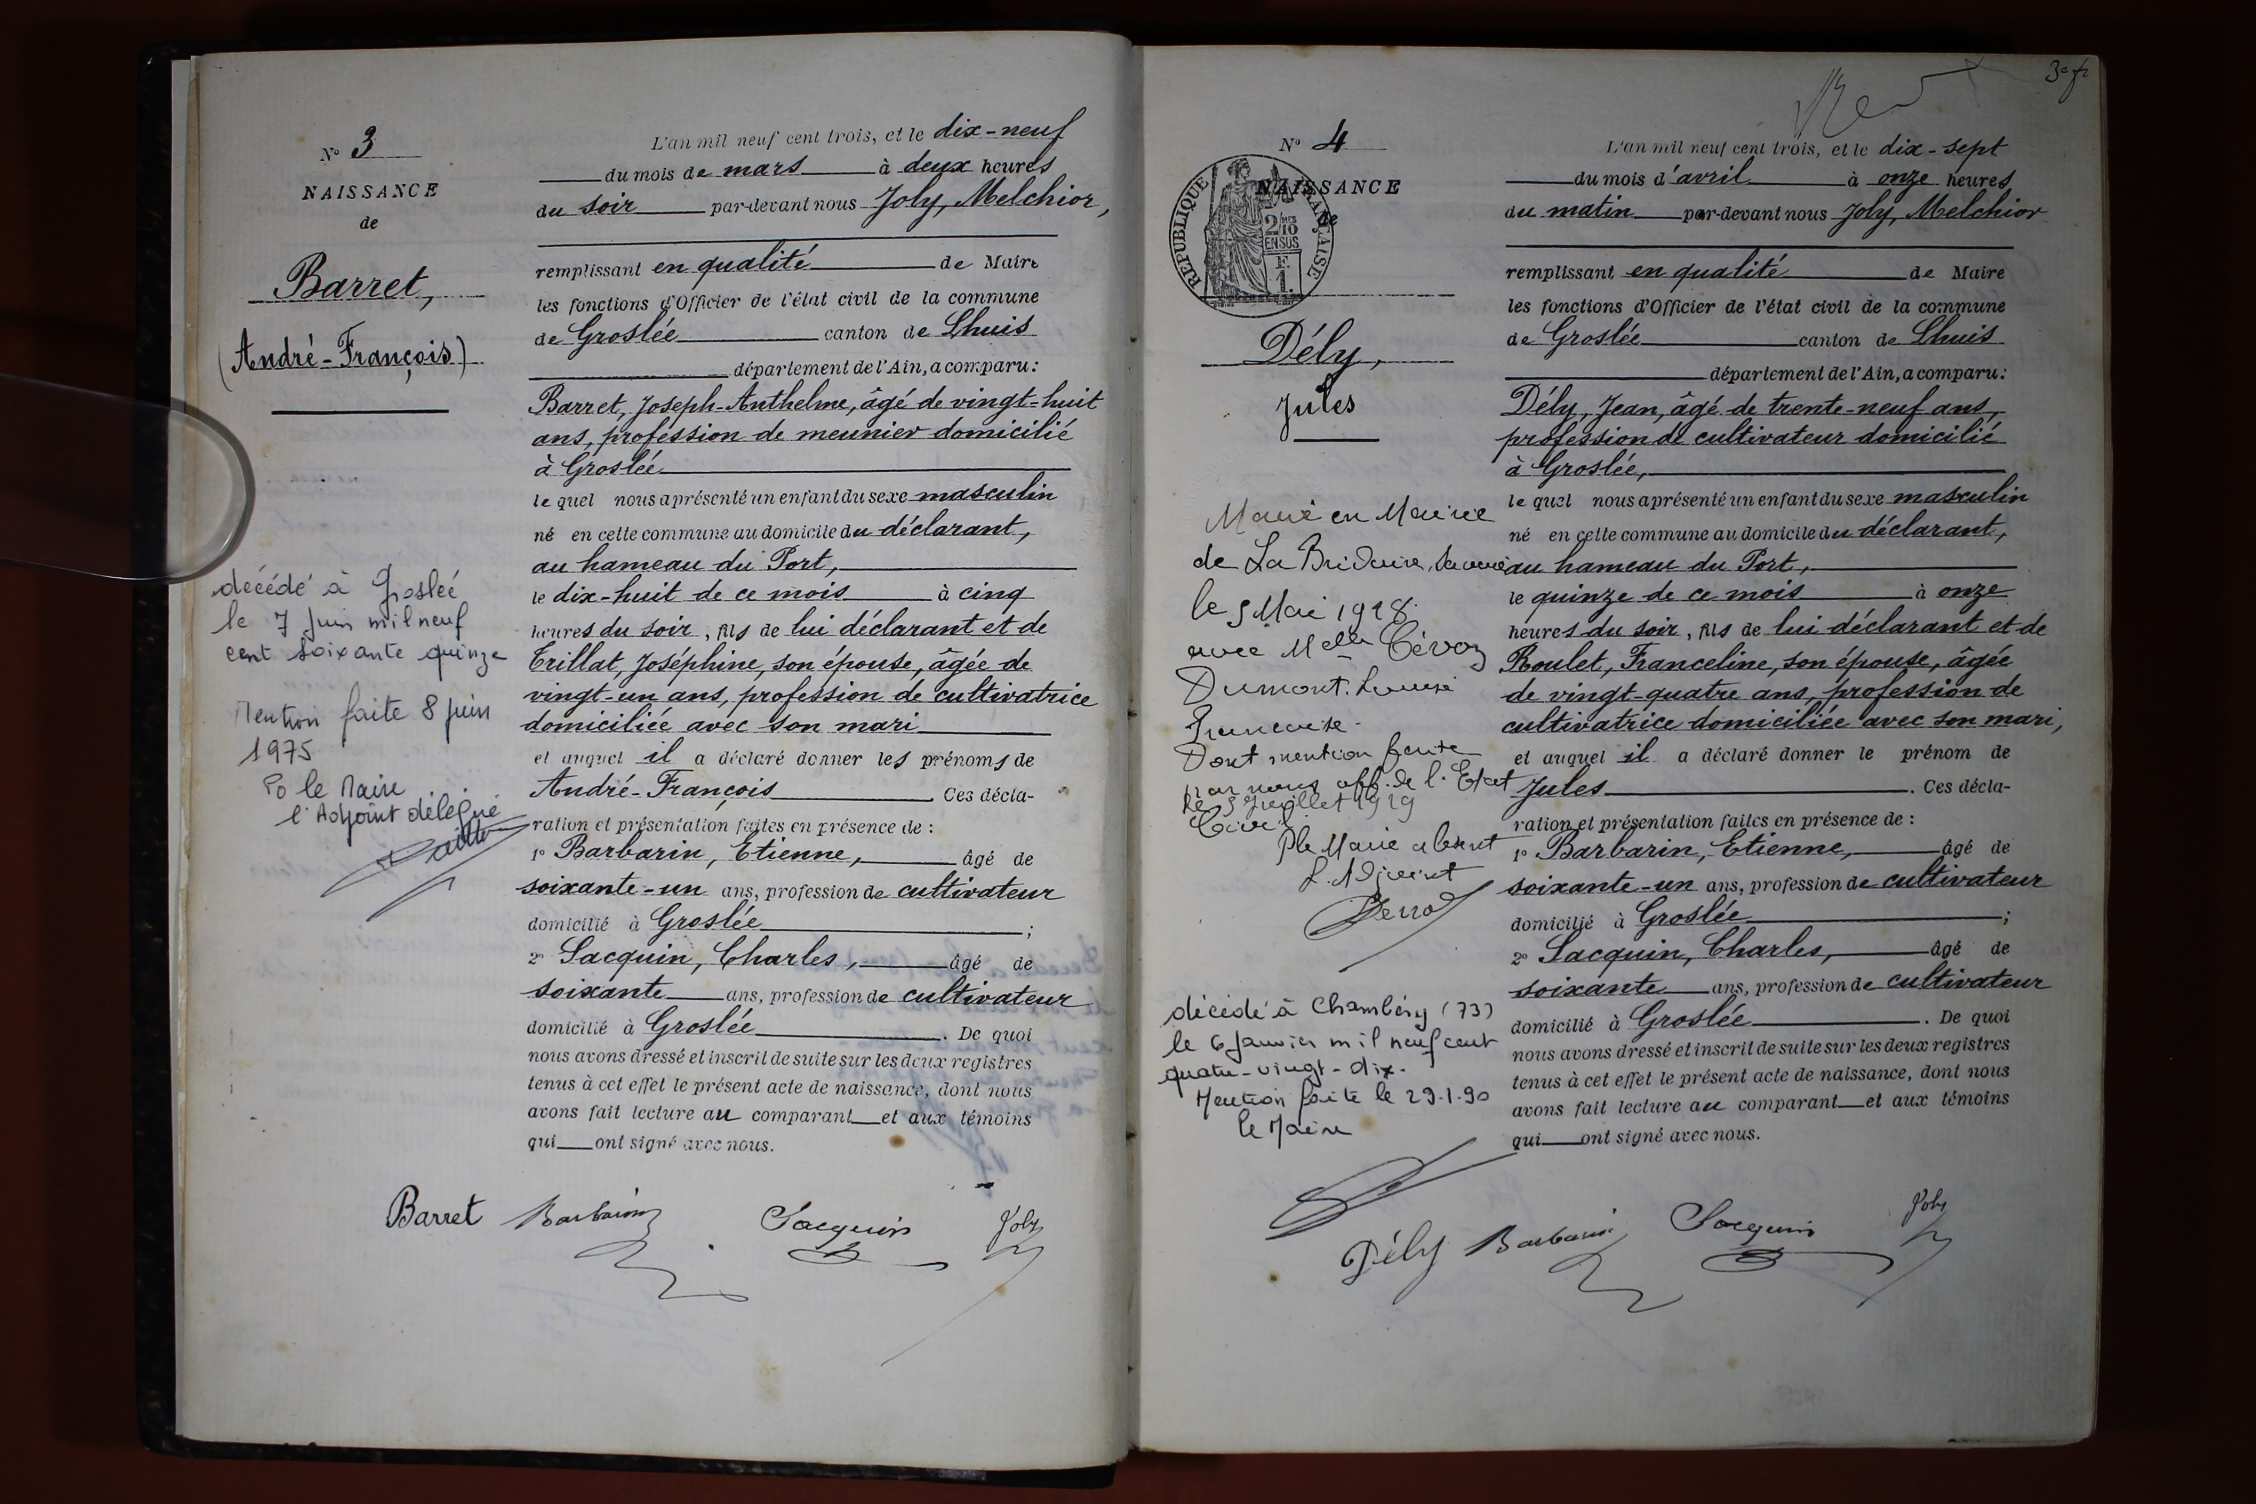 N° 3
NAISSANCE
de
Barret,
(André-François)
décédé à Groslée
le 7 juin mil neuf
cent soixante quinze
Mention faite 8 juin
1975
Po le Maire
l'Adjoint délégué
L'an mil neuf cent trois, et le dix-neuf
du mois de mars à deux heures
du soir par-devant nous Joly, Melchior,
remplissant en qualité de Maire
les fonctions d'Officier de l'état civil de la commune
de Groslée canton de Lhuis
département de l'Ain, a comparu:
Barret, Joseph-Anthelme, âgé de vingt-huit
ans, profession de meunier domicilié
à Groslée
le quel nous a présenté un enfant du sexe masculin
né en cette commune au domicile du déclarant,
au hameau du Port,
le dix-huit de ce mois à cinq
heures du soir, fils de lui déclarant et de
Trillat, Joséphine, son épouse, âgée de
vingt-un ans, profession de cultivatrice
domiciliée avec son mari
et auquel il a déclaré donner les prénoms de
André-François. Ces décla-
ration et présentation faites en présence de :
1° Barbarin, Etienne, âgé de
soixante-un ans, profession de cultivateur
domicilié à Groslée ;
2° Sacquin, Charles, âgé de
soixante ans, profession de cultivateur
domicilié à Groslée. De quoi
nous avons dressé et inscrit de suite sur les deux registres
tenus à cet effet le présent acte de naissance, dont nous
avons fait lecture au comparant et aux témoins
qui ont signé avec nous.
Barret Barbarin Sacquin Joly
N° 4
NAISSANCE
de
REPUBLIQUE FRANÇAISE
2/10 EN SUS
F. 1.
Dély,
Jules
Marié en Mairie
de La
le 5 Mai 1928.
avec Melle
Dumont. Louise
Françoise.
Dont mention faite
par nous off. de l'Etat
Civil
le 5 Juillet 1929
Ple Maire absent
L'Adjoint
décédé à Chambéry (73)
le 6 Janvier mil neuf cent
quatre-vingt-dix.
Mention faite le 29.1.90
le Maire
L'an mil neuf cent trois, et le dix-sept
du mois d'avril à onze heures
du matin par-devant nous Joly, Melchior
remplissant en qualité de Maire
les fonctions d'Officier de l'état civil de la commune
de Groslée canton de Lhuis
département de l'Ain, a comparu:
Dély, Jean, âgé de trente-neuf ans,
profession de cultivateur domicilié
à Groslée,
le quel nous a présenté un enfant du sexe masculin
né en cette commune au domicile du déclarant,
au hameau du Port,
le quinze de ce mois à onze
heures du soir, fils de lui déclarant et de
Roulet, Franceline, son épouse, âgée
de vingt-quatre ans, profession de
cultivatrice domiciliée avec son mari,
et auquel il a déclaré donner le prénom de
Jules. Ces décla-
ration et présentation faites en présence de :
1° Barbarin, Etienne, âgé de
soixante-un ans, profession de cultivateur
domicilié à Groslée ;
2° Sacquin, Charles, âgé de
soixante ans, profession de cultivateur
domicilié à Groslée. De quoi
nous avons dressé et inscrit de suite sur les deux registres
tenus à cet effet le présent acte de naissance, dont nous
avons fait lecture au comparant et aux témoins
qui ont signé avec nous.
Dély Barbarin Sacquin Joly